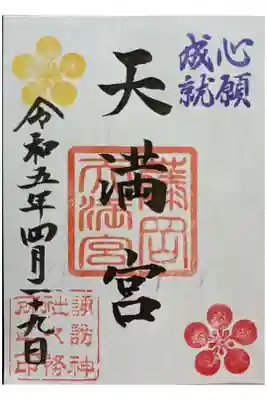 心願
成就
天満宮
藤岡
天満宮
令和五年四月二十九日
諏訪神
社社務
所之印